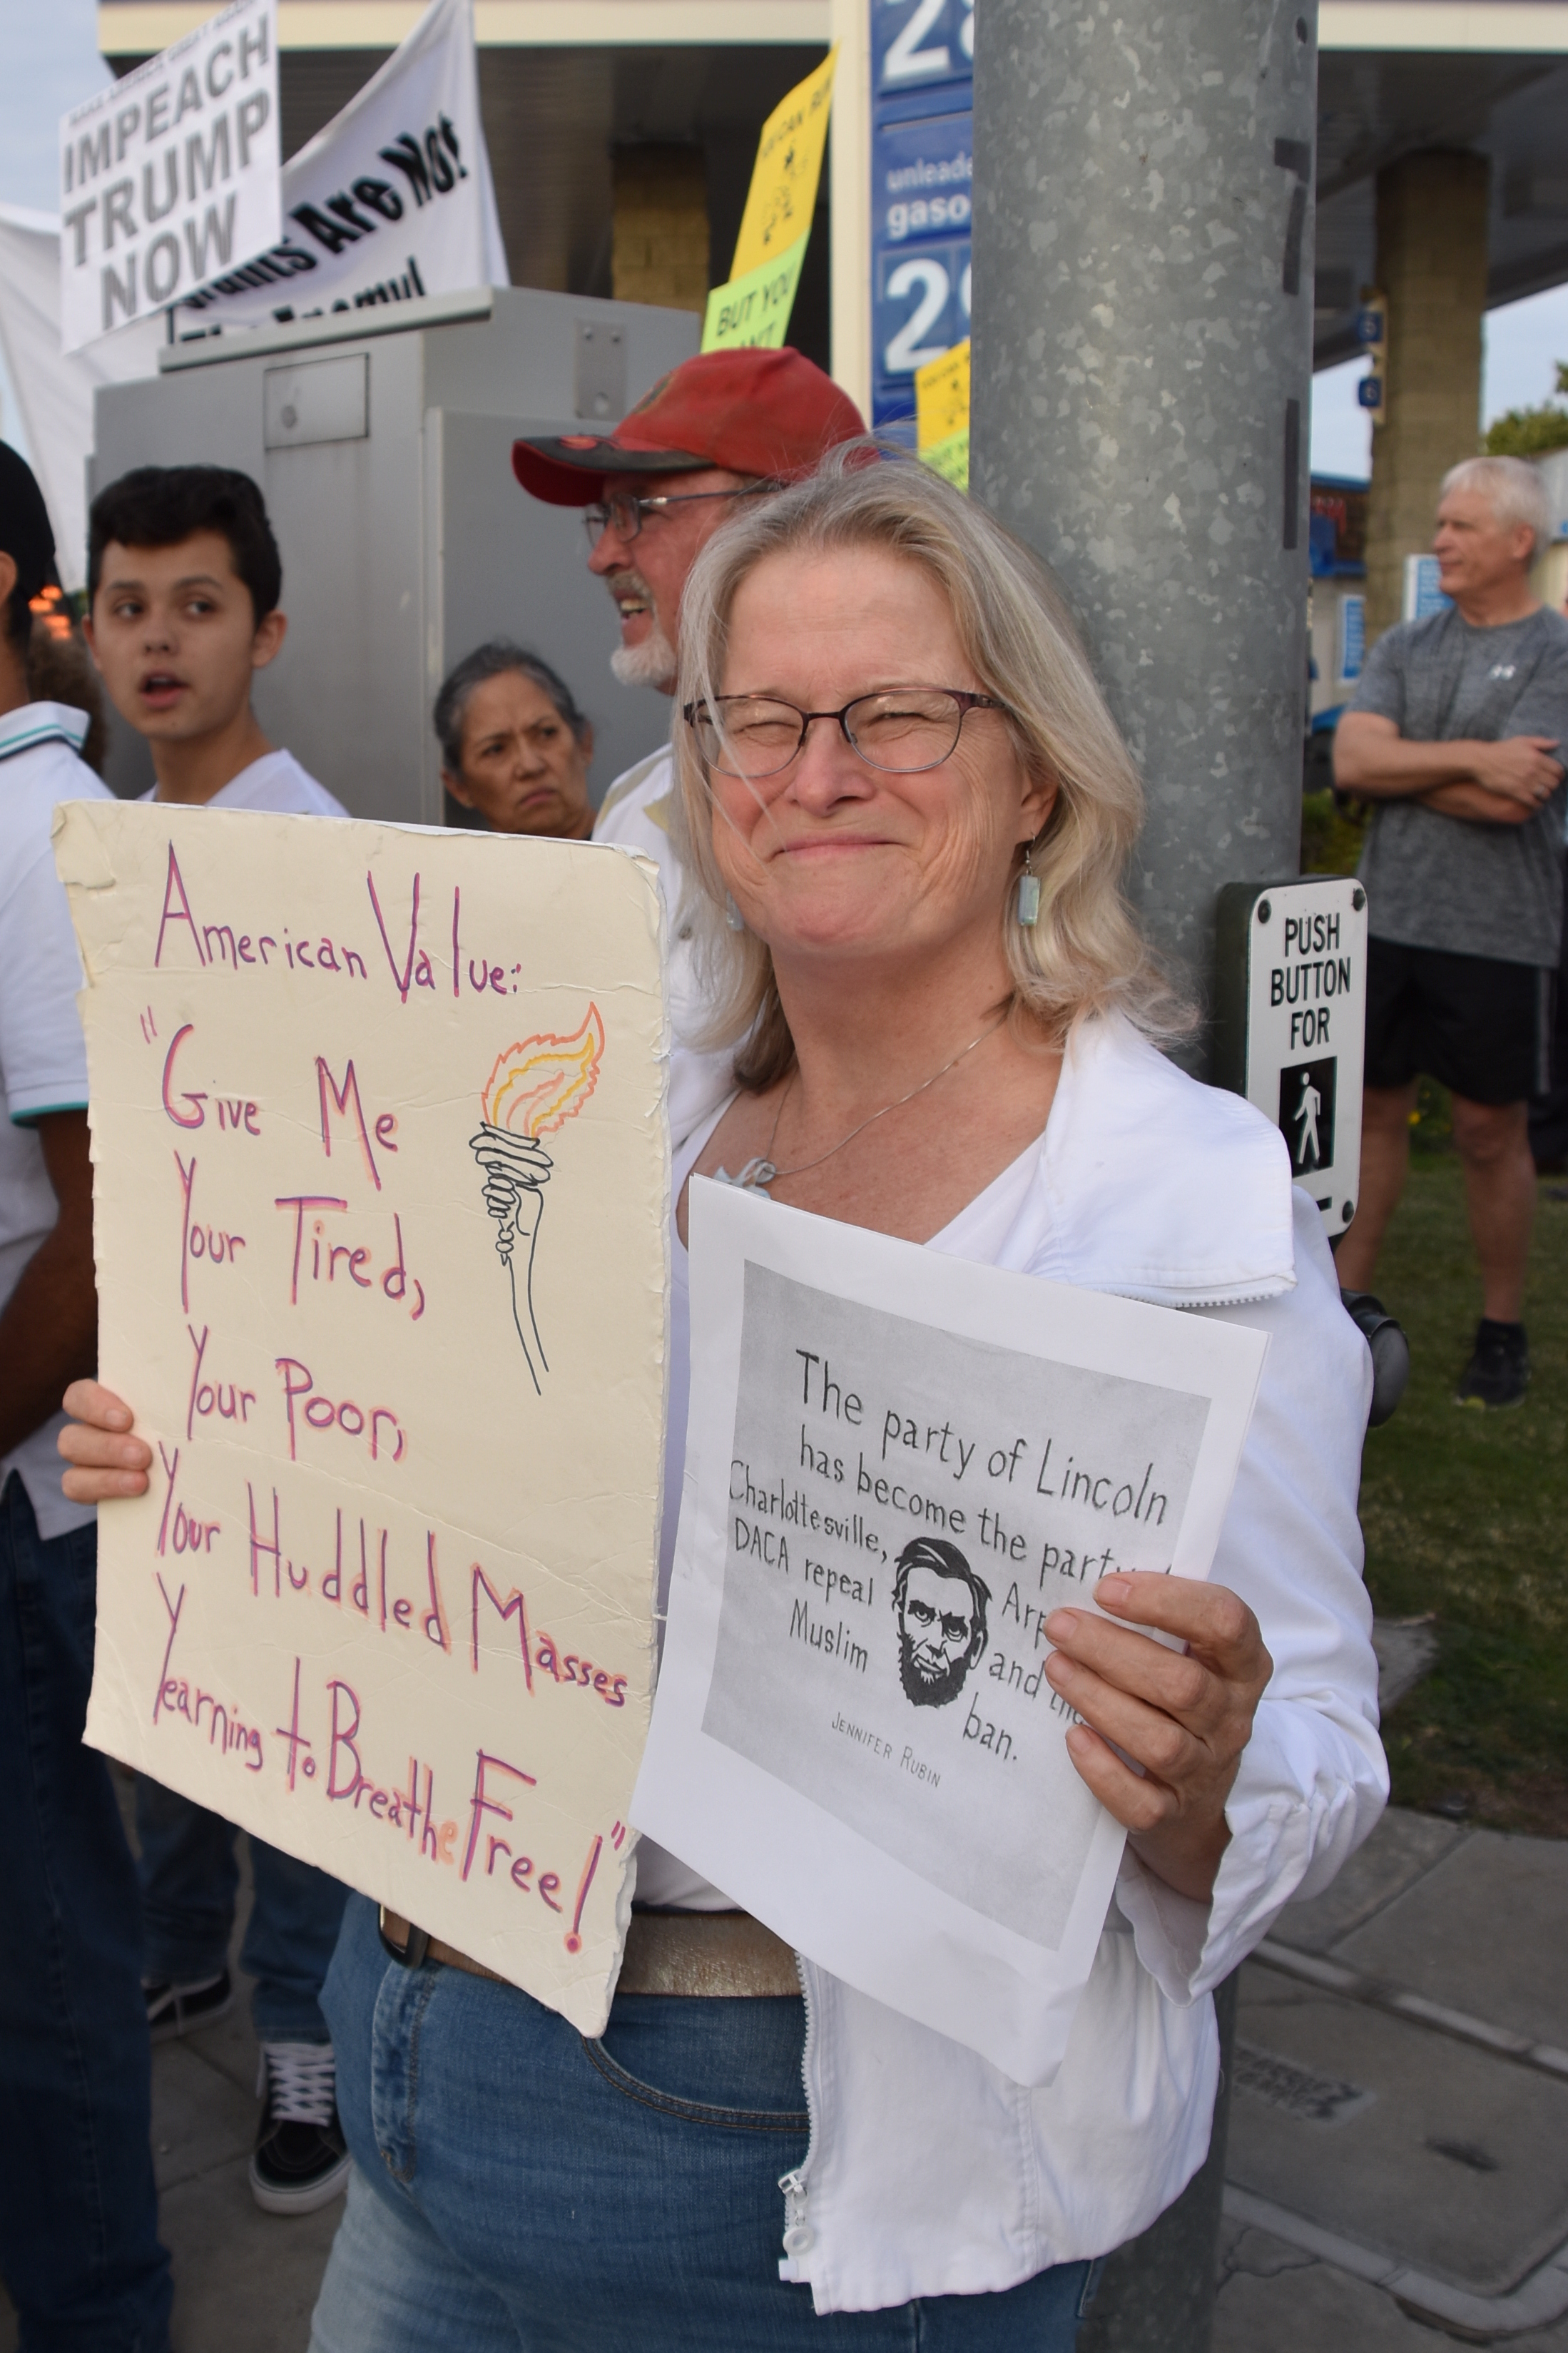 IMPEACH
TRUMP
NOW
Are Not
Enemy!
BUT YOU
unleade
gaso
American Value:
"Give Me
Your Tired,
Your Poor,
Your Huddled Masses
Yearning to Breathe Free!"
The party of Lincoln
has become the party
Charlottesville, Arp
DACA repeal and the
Muslim ban.
JENNIFER RUBIN
PUSH
BUTTON
FOR